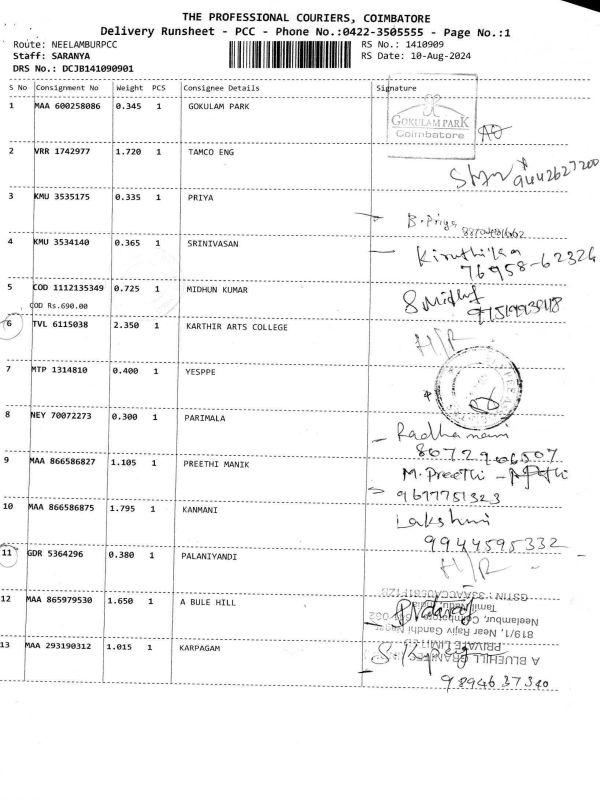 THE PROFESSIONAL COURIERS, COIMBATORE
Delivery Runsheet - PCC - Phone No.:0422-3505555 - Page No.:1
Route: NEELAMBURPCC RS No.: 1410909
Staff: SARANYA RS Date: 10-Aug-2024
DRS No.: DCJB141090901
S No Consignment No Weight PCS Consignee Details Signature
1 MAA 600258086 0.345 1 GOKULAM PARK
GOKULAM PARK
Coimbatore
2 VRR 1742977 1.720 1 TAMCO ENG
9442627200
3 KMU 3535175 0.335 1 PRIYA
B. Priya
4 KMU 3534140 0.365 1 SRINIVASAN
Kiruthika
76958-62324
5 COD 1112135349 0.725 1 MIDHUN KUMAR
COD Rs.690.00
S Midhu
6 TVL 6115038 2.350 1 KARTHIR ARTS COLLEGE
H/R
7 MTP 1314810 0.400 1 YESPPE
8 NEY 70072273 0.300 1 PARIMALA
Radhamani
9 MAA 866586827 1.105 1 PREETHI MANIK
M. Preethi
9677751323
10 MAA 866586875 1.795 1 KANMANI
Lakshmi
9944595332
11 GDR 5364296 0.380 1 PALANIYANDI
H/R
12 MAA 865979530 1.650 1 A BULE HILL
Neelambur, Coimbatore
819/1, Near Rajiv Gandhi Nagar
PRIVATE LIMITED
A BLUEHILL GRANITES
13 MAA 293190312 1.015 1 KARPAGAM
9894637340